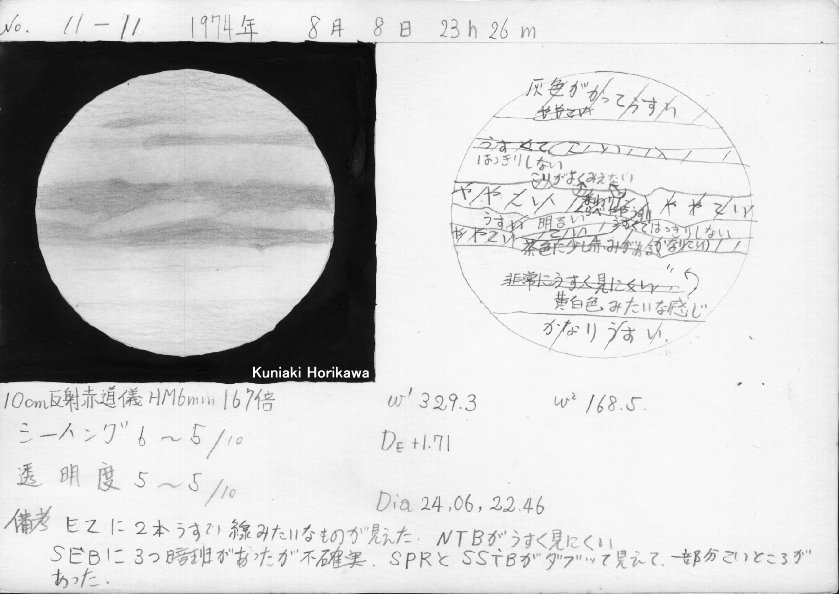 No. 11-11 1974年 8月 8日 23h 26m
灰色がかってうすい
ややこい
うすくて
はっきりしない
ややこい ややこい
うすい 明るい はっきりしない
ややこい こい (かなりこい)
茶色に少し赤みがある
非常にうすく見にくい
黄白色みたいな感じ
かなりうすい.
Kuniaki Horikawa
10cm反射赤道儀 HM6mm 167倍
ω¹ 329.3 ω² 168.5.
シーイング 6~5/10
DE +1.71
透明度 5~5/10
Dia 24.06, 22.46
備考 EZに2本うすい線みたいなものが見えた. NTBがうすく見にくい
SEBに3つ暗斑があったが不確実. SPRとSSTBがダブって見えて、一部分こいところが
あった.